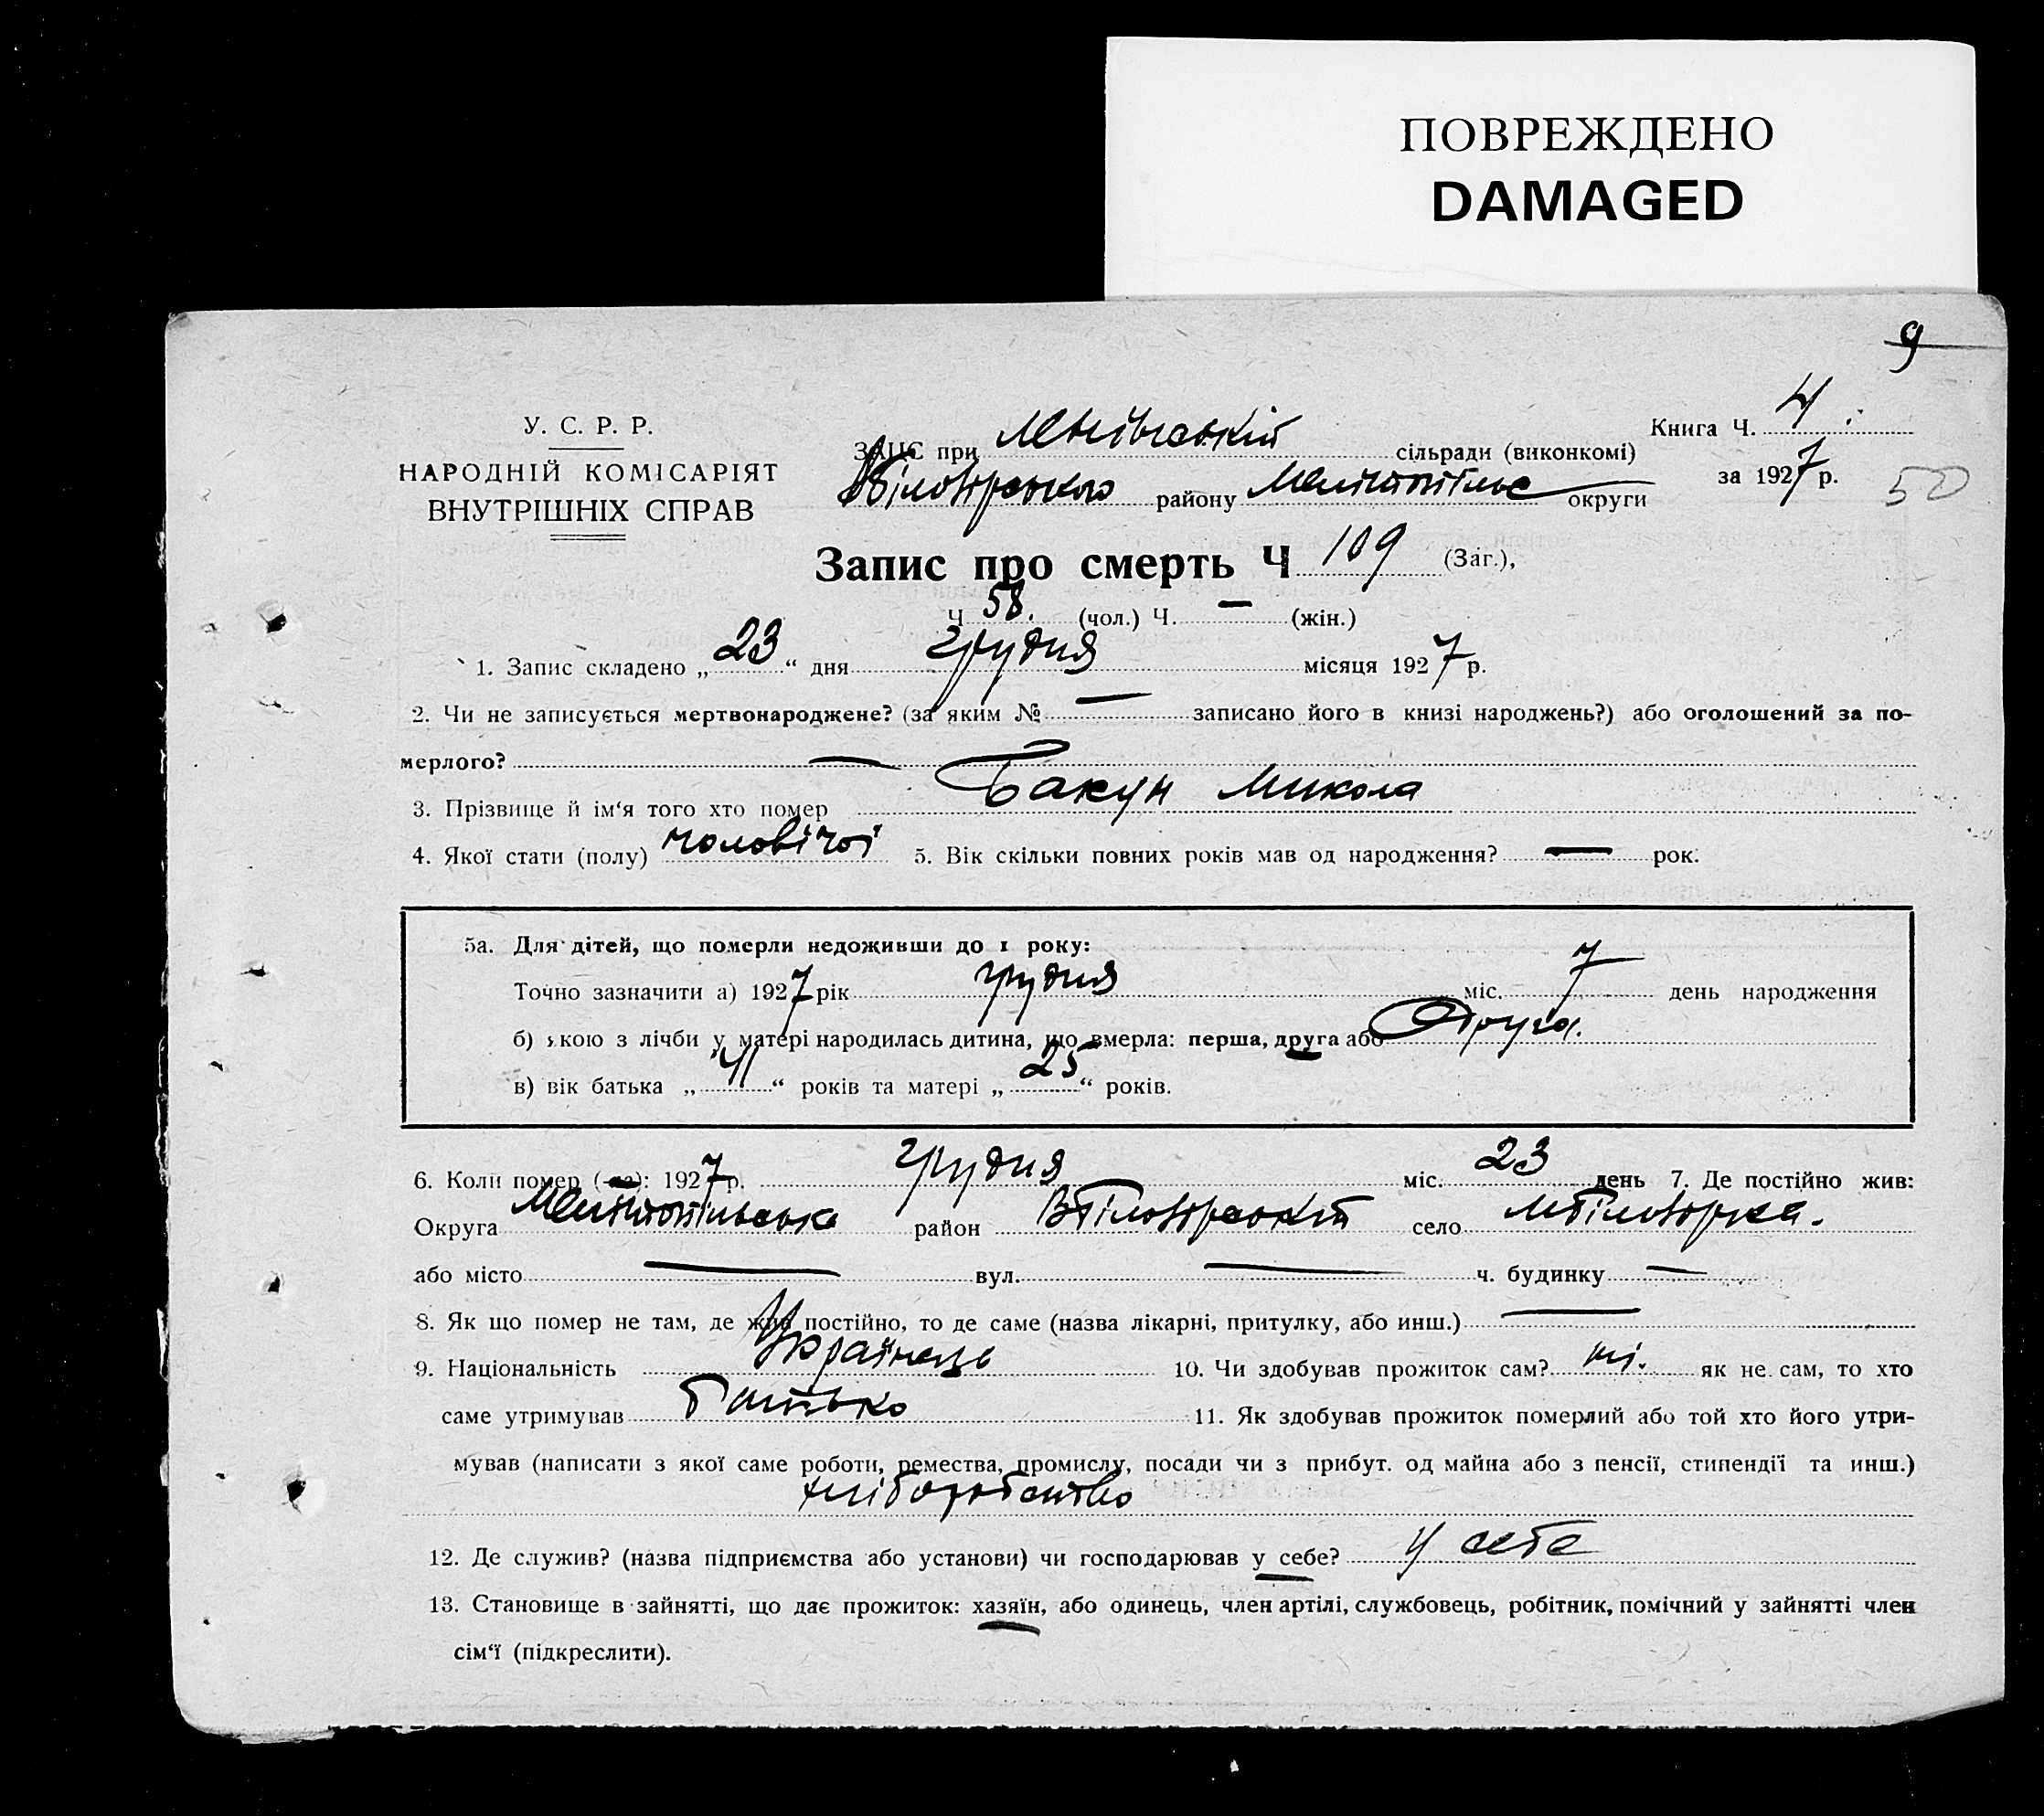 ПОВРЕЖДЕНО
DAMAGED
9
У. С. Р. Р.
НАРОДНІЙ КОМІСАРІЯТ
ВНУТРІШНІХ СПРАВ
ЗАГС при сільради (виконкомі)
району округи
Книга Ч. 4
за 1927 р.
50
Запис про смерть Ч 109 (Заг.),
Ч 58. (чол.) Ч. — (жін.)
1. Запис складено „ 23 “ дня грудня місяця 1927 р.
2. Чи не записується мертвонароджене? (за яким № — записано його в книзі народжень?) або оголошений за по-
мерлого? —
3. Прізвище й ім‘я того хто помер Бакун Микола
4. Якої стати (полу) чоловічої 5. Вік скільки повних років мав од народження? — рок.
5а. Для дітей, що померли недоживши до 1 року:
Точно зазначити а) 1927 рік грудня міс. 7 день народження
б) якою з лічби у матері народилась дитина, що вмерла: перша, друга або Друга.
в) вік батька „ “ років та матері „ 25 “ років.
6. Коли помер (-ла): 1927 р. грудня міс. 23 день 7. Де постійно жив:
Округа Мелітопільська район село
або місто — вул. — ч. будинку —
8. Як що помер не там, де жив постійно, то де саме (назва лікарні, притулку, або инш.) —
9. Національність Українець 10. Чи здобував прожиток сам? ні. як не сам, то хто
саме утримував батько 11. Як здобував прожиток померлий або той хто його утри-
мував (написати з якої саме роботи, ремества, промислу, посади чи з прибут. од майна або з пенсії, стипендії та инш.)
хліборобство
12. Де служив? (назва підприємства або установи) чи господарював у себе? у себе
13. Становище в зайнятті, що дає прожиток: хазяїн, або одинець, член артілі, службовець, робітник, помічний у зайнятті член
сім‘ї (підкреслити).